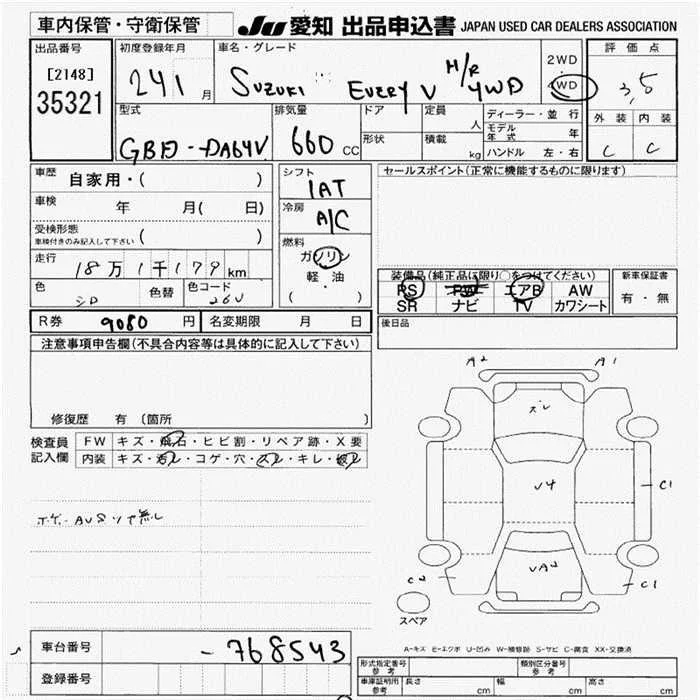 車内保管・守衛保管
JU 愛知 出品申込書 JAPAN USED CAR DEALERS ASSOCIATION
出品番号
[2148]
35321
初度登録年月
24 1 月
車名・グレード
SUZUKI EVERY V H/R 4WD
2WD
4WD
評価点
3,5
外装 内装
C C
型式
GBD-DA64V
排気量
660 CC
ドア
形状
定員 人
積載 kg
ディーラー・並行
モデル年式 年
ハンドル 左・右
車歴
自家用・( )
車検 年 月( 日)
受検形態
車検付きのみ記入して下さい ( )
走行
18万1千179km
色 色替 色コード
26U
シフト
1AT
冷房
A/C
燃料
ガソリン
軽・油
( ・ )
セールスポイント(正常に機能するものに限ります)
装備品(純正品に限り○をつけてください)
PS PW エアB AW
SR ナビ TV カワシート
新車保証書
有・無
R券 9080 円 名変期限 月 日
後日品
注意事項申告欄(不具合内容等は具体的に記入して下さい)
修復歴 有 (箇所 )
検査員
記入欄
FW キズ・飛石・ヒビ割・リペア跡・X要
内装 キズ・汚レ・コゲ・穴・スレ・キレ・破レ
A2 A1
スレ
U4
C1
UA2
C2
C1
スペア
A-キズ E-エクボ U-凹み W-補修跡 S-サビ C-腐食 XX-交換済
車台番号 -768543
登録番号
型式指定番号
参考
類別区分番号
参考
車庫証明用
参考
長さ cm 幅 cm 高さ cm